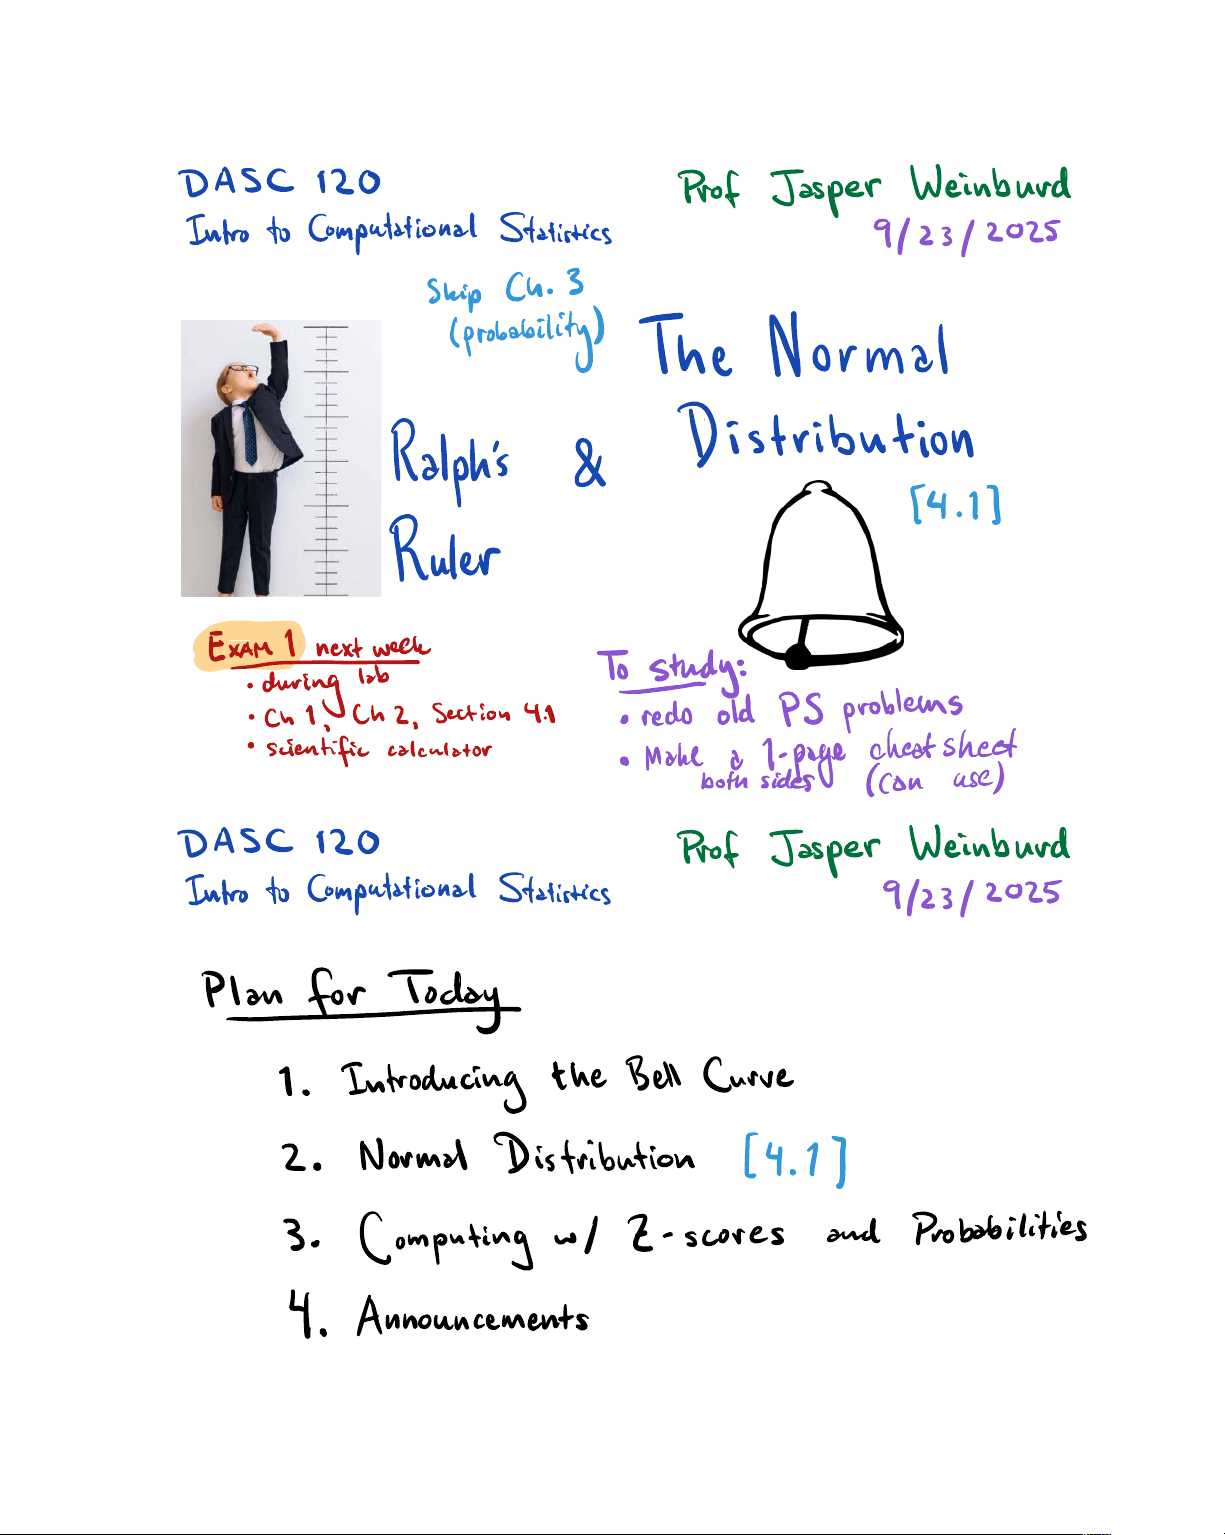 DASC 120
Prof Jasper Weinburd
Intro to Computational Statistics
9/23/2025
Skip Ch. 3
(probability)
The Normal
Distribution
[4.1]
Ralph's &
Ruler
EXAM 1 next week
• during lab
• Ch 1, Ch 2, Section 4.1
• scientific calculator
To study:
• redo old PS problems
• Make a 1-page cheat sheet
both sides (can use)
DASC 120
Prof Jasper Weinburd
Intro to Computational Statistics
9/23/2025
Plan for Today
1. Introducing the Bell Curve
2. Normal Distribution [4.1]
3. Computing w/ Z-scores and Probabilities
4. Announcements